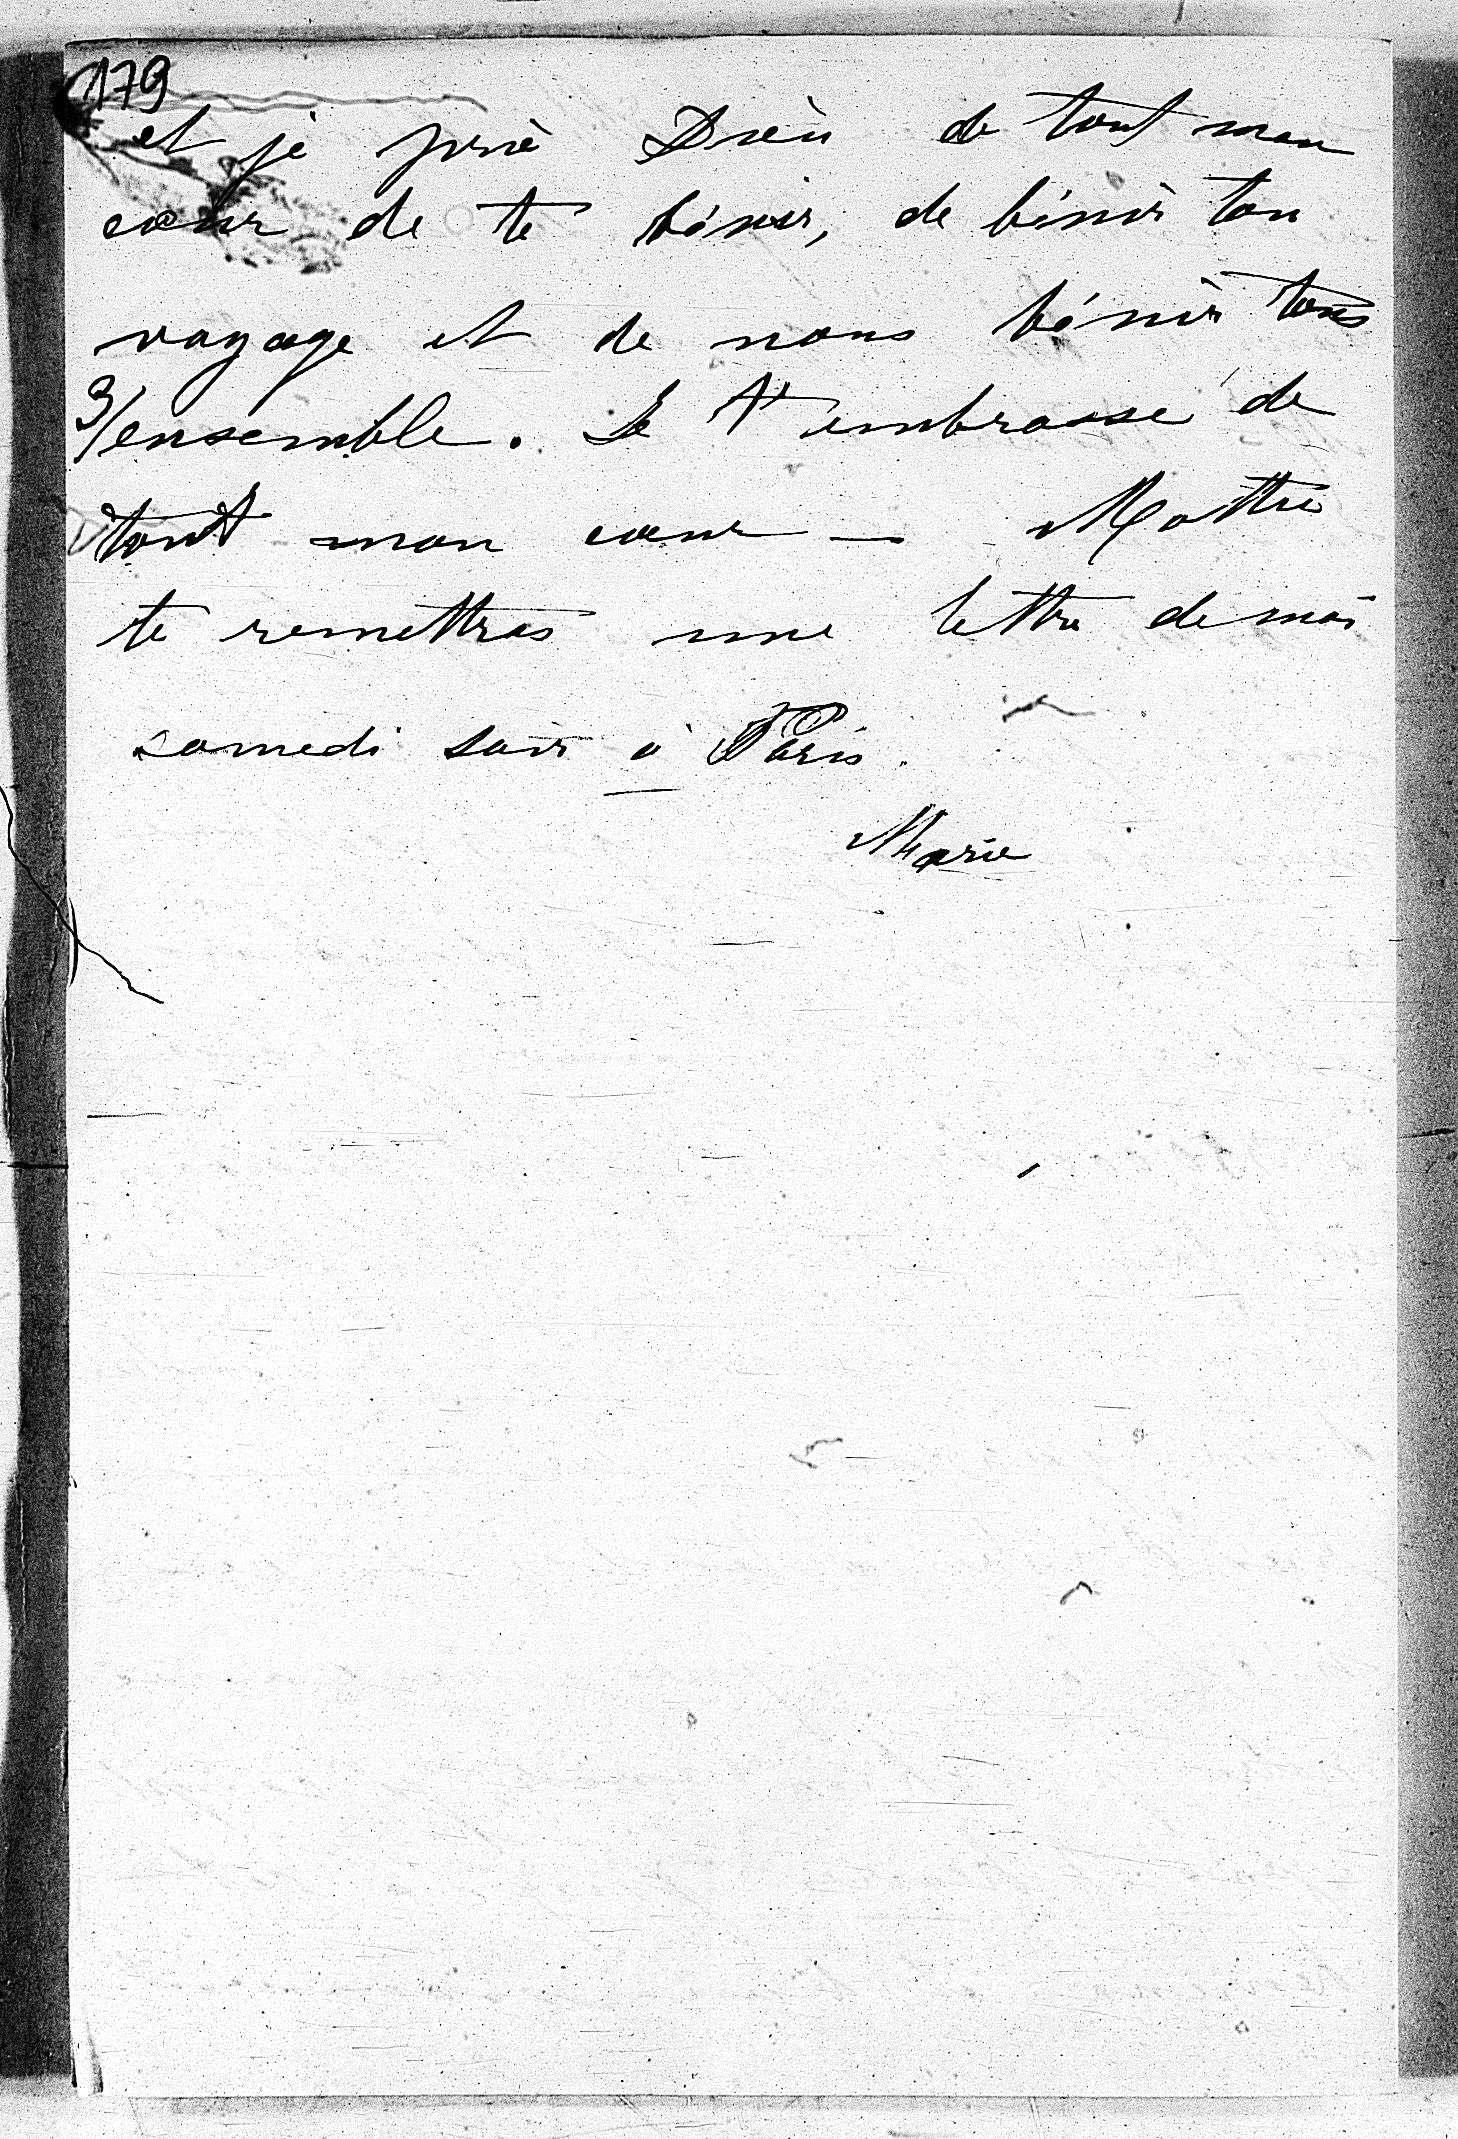 179
et je prie Dieu de tout mon
cœur de te bénir, de bénir ton
voyage et de nous bénir tous
3/ ensemble. Je t'embrasse de
tout mon cœur —
te remettras une lettre de moi
samedi soir à Paris.
Marie